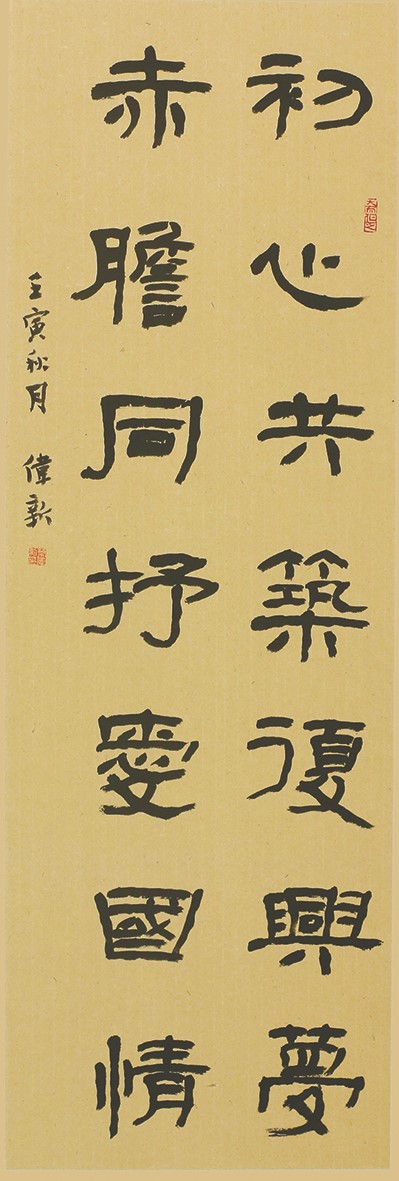 初心共築復興夢
赤膽同抒愛國情
壬寅秋月 偉新